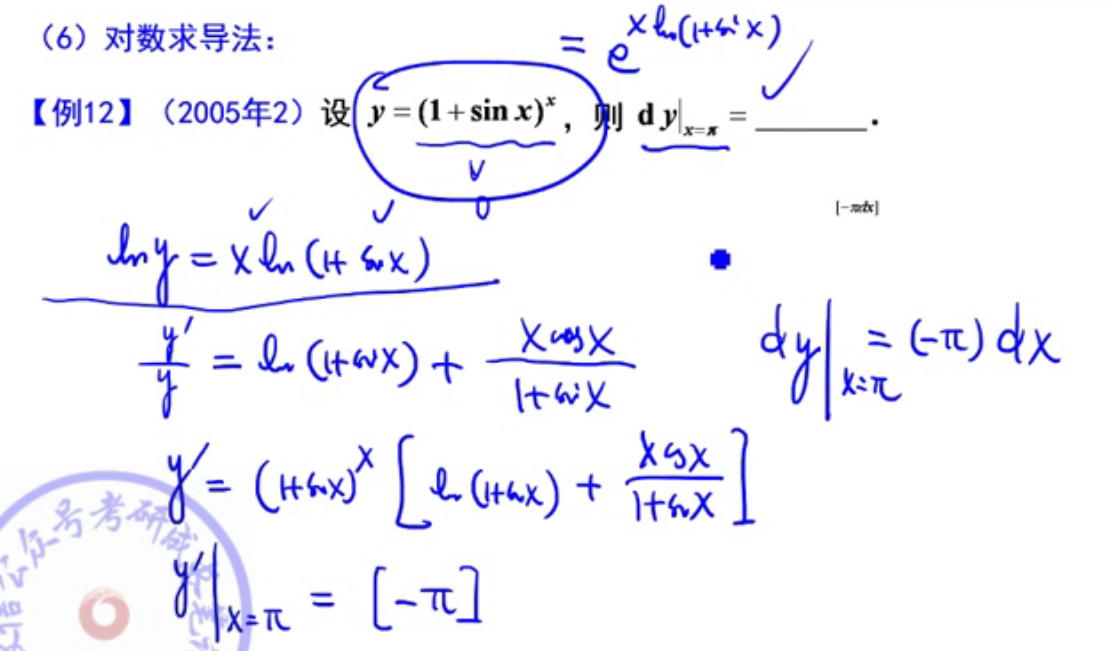 （6）对数求导法：
= e^{x ln(1+sin x)}
【例12】（2005年2）设 y = (1+sin x)^x，则 d y|_{x=π} = ______.
∨
0
[-πdx]
ln y = x ln(1+sin x)
y'/y = ln(1+sin x) + x cos x/(1+sin x)
dy|_{x=π} = (-π) dx
y' = (1+sin x)^x [ln(1+sin x) + x cos x/(1+sin x)]
y'|_{x=π} = [-π]
众号考研